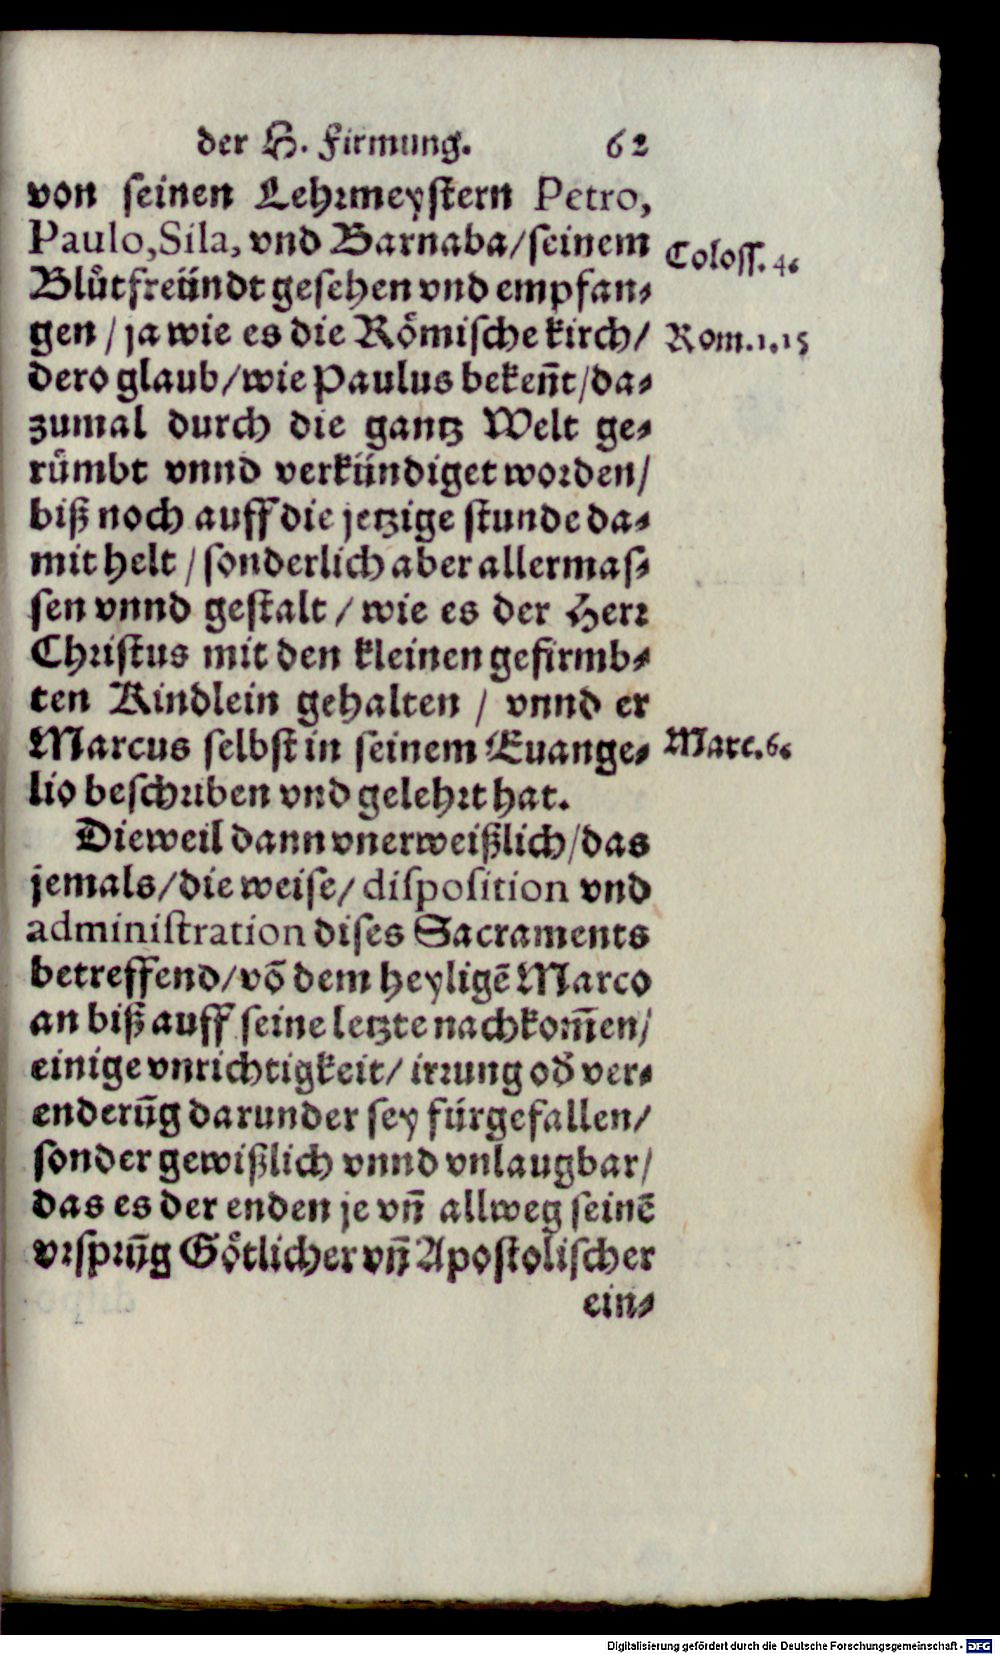 der H. Firmung. 62
von seinen Lehrmeystern Petro,
Paulo, Sila, vnd Barnaba/seinem
Coloss. 4.
Blůtfreündt gesehen vnd empfan-
gen/ja wie es die Römische kirch/
Rom.1.15
dero glaub/wie Paulus bekeñt/da-
zumal durch die gantz Welt ge-
rümbt vnnd verkündiget worden/
biß noch auff die jetzige stunde da-
mit helt/sonderlich aber allermas-
sen vnnd gestalt/wie es der Herr
Christus mit den kleinen gefirmb-
ten Kindlein gehalten/vnnd er
Marcus selbst in seinem Euange-
Marc.6.
lio beschriben vnd gelehrt hat.
Dieweil dann vnerweißlich/das
jemals/die weise/disposition vnd
administration dises Sacraments
betreffend/võ dem heyligẽ Marco
an biß auff seine letzte nachkom̃en/
einige vnrichtigkeit/irrung od̃ ver-
enderũg darunder sey fürgefallen/
sonder gewißlich vnnd vnlaugbar/
das es der enden je vñ allweg seinẽ
vrsprũg Götlicher vñ Apostolischer
ein-
Digitalisierung gefördert durch die Deutsche Forschungsgemeinschaft - DFG